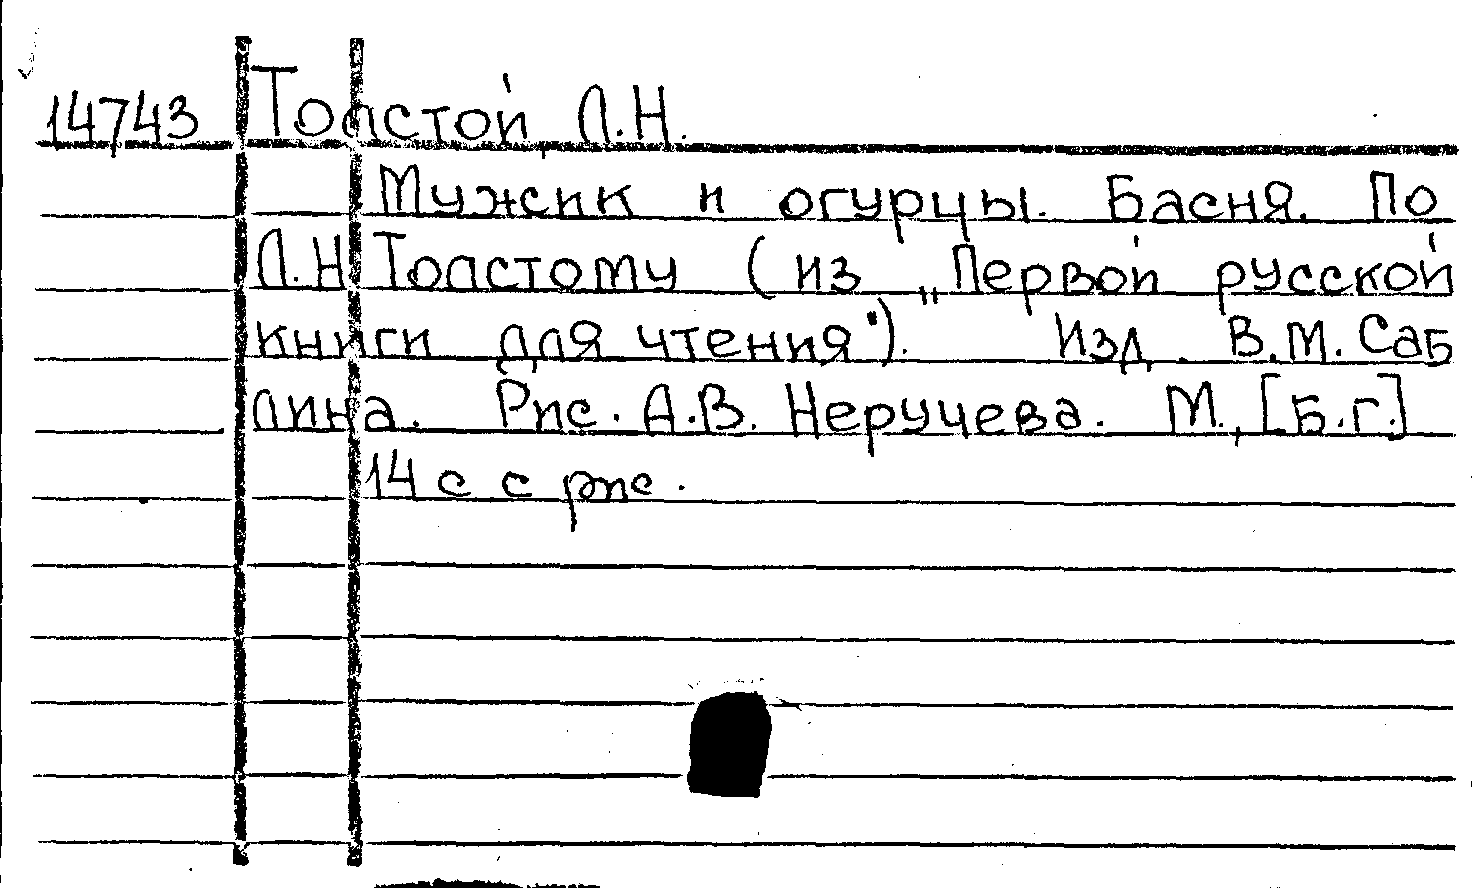 14743 Толстой Л.Н.
Мужик и огурцы. Басня. По
Л.Н Толстому (из „Первой русской
книги для чтения"). Изд. В.М. Саб
лина. Рис. А.В. Неручева. М., [Б.г.]
14 с с рис.